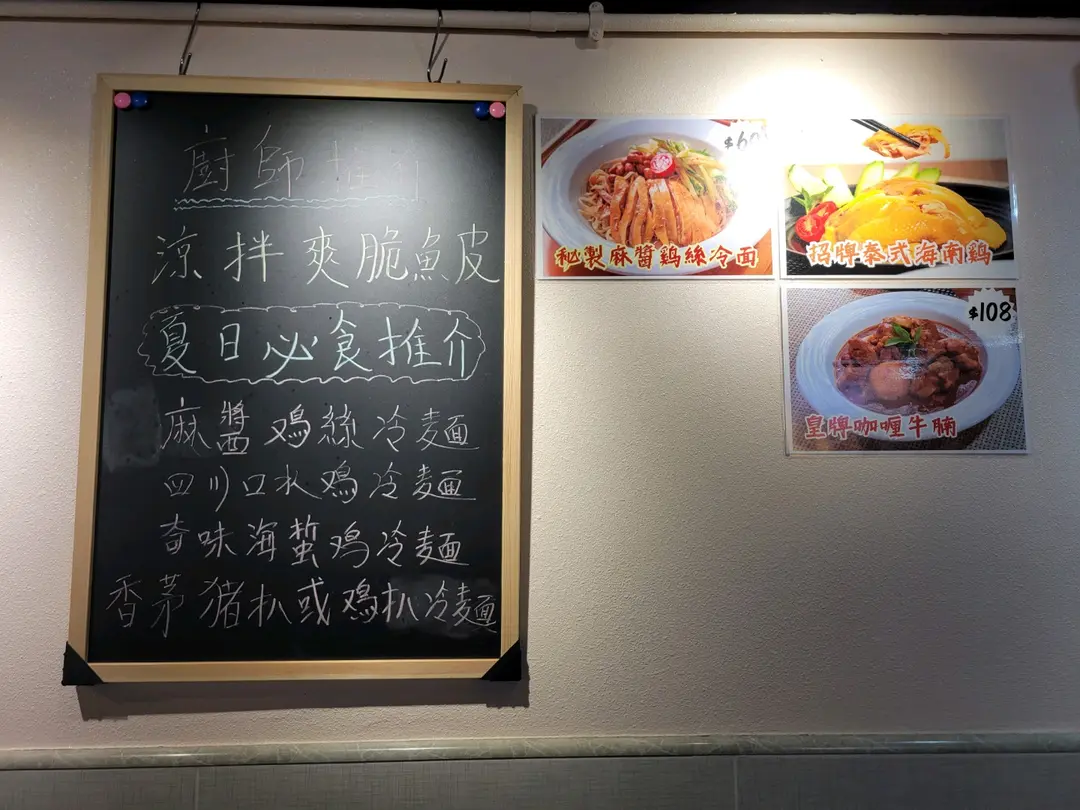 廚師推介
涼拌爽脆魚皮
夏日必食推介
麻醬鸡絲冷麵
四川口水鸡冷麵
奇味海蜇鸡冷麵
香茅猪扒或鸡扒冷麵
$60
秘製麻醬鷄絲冷面
招牌泰式海南鷄
$108
皇牌咖喱牛腩